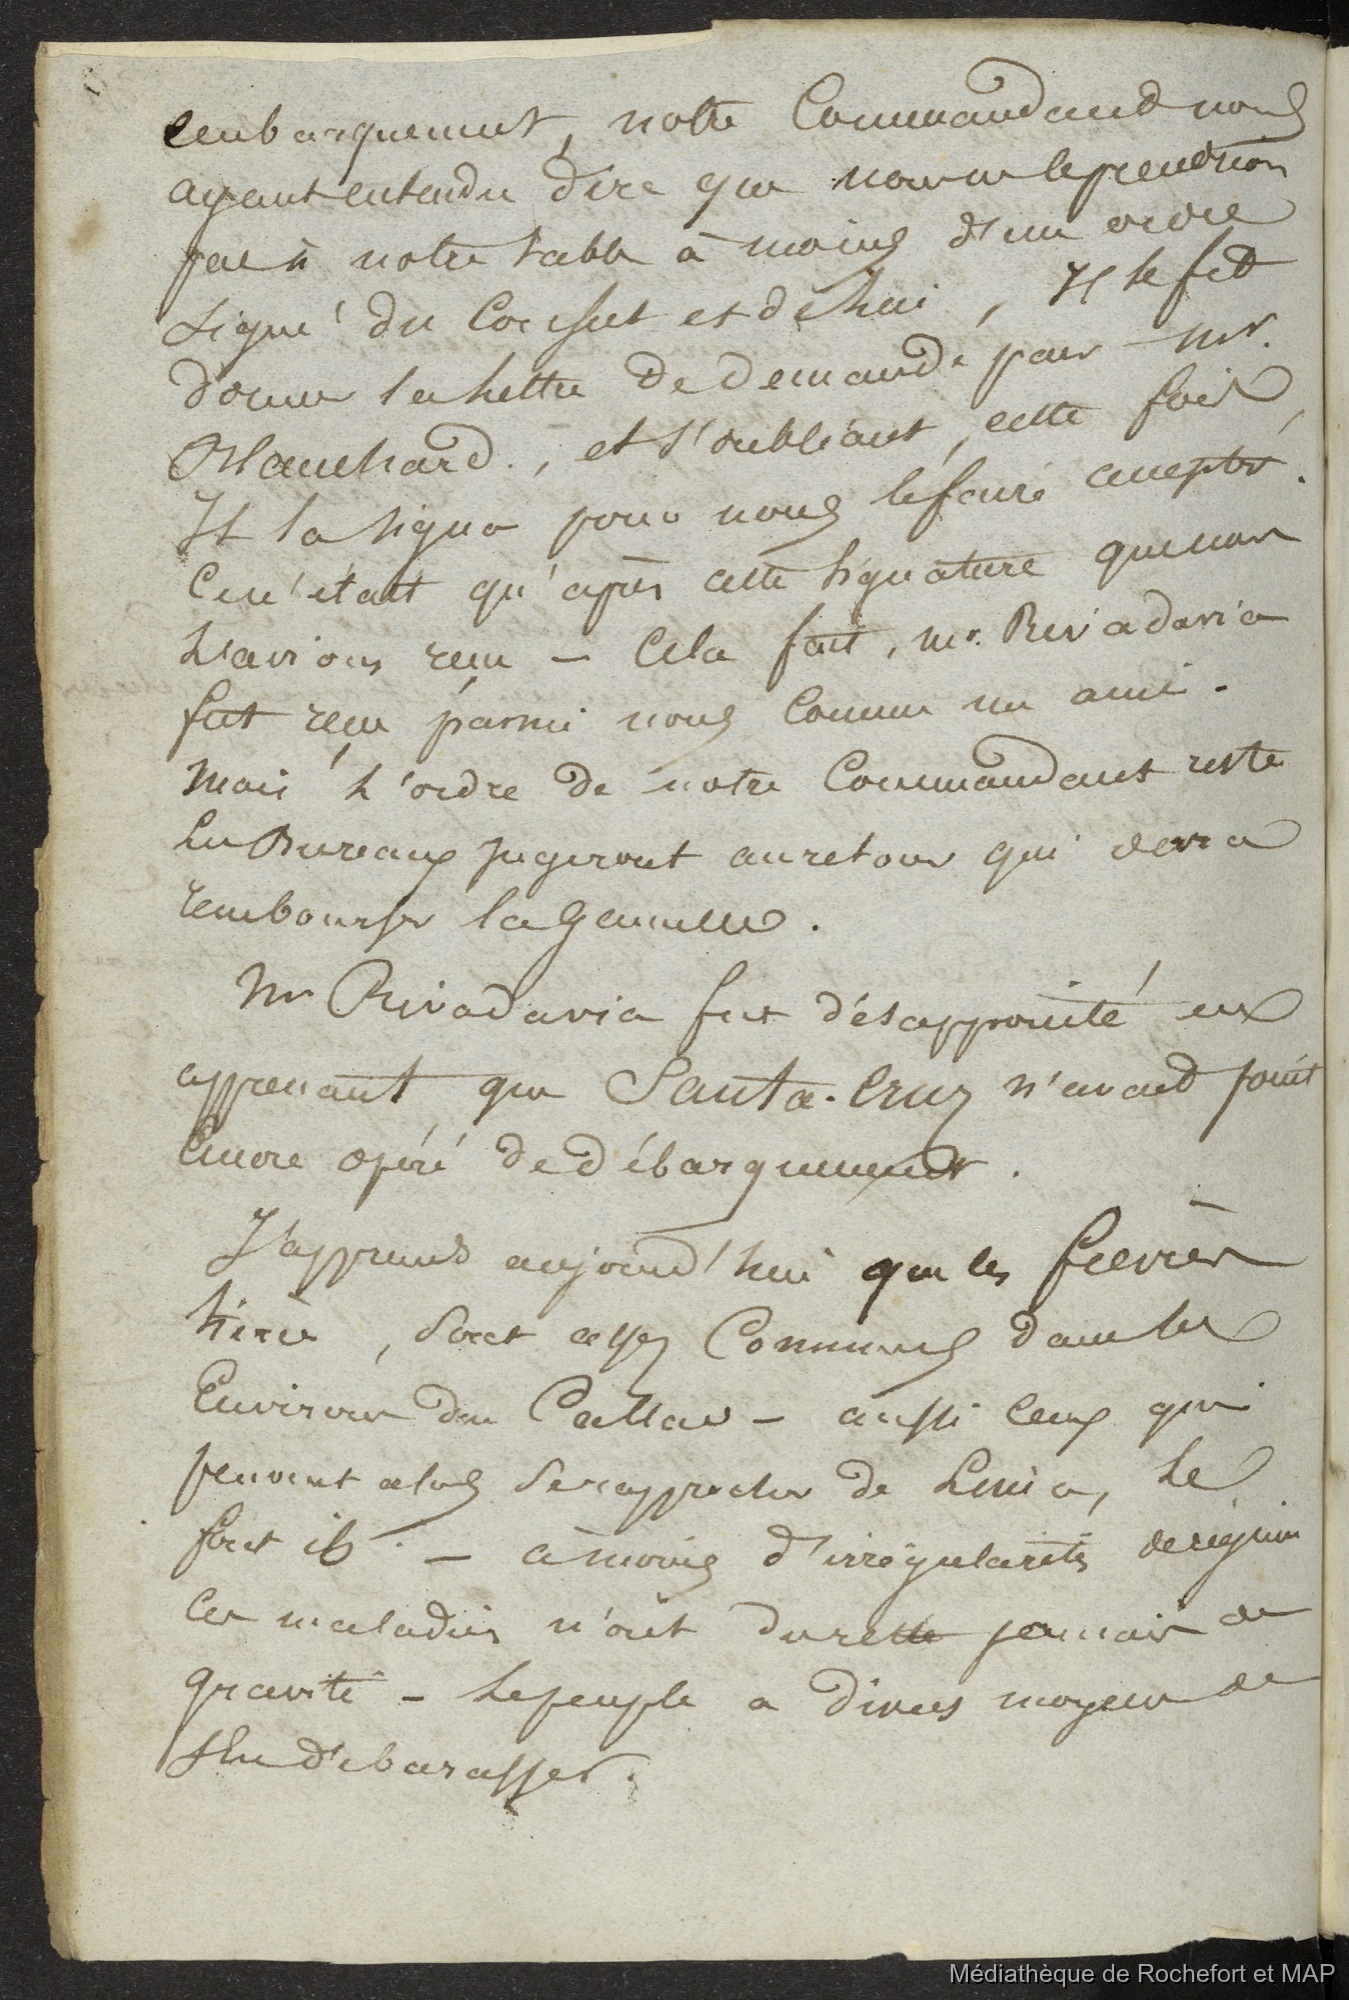 embarquement, notre Commandant nous
ayant entendu dire que nous ne le prendrions
pas à notre table à moins d'un ordre
signé du Consul et de lui, Il se fit
donner la lettre de demande par Mr.
Blanchard, et s'oubliant, cette fois,
Il la signa pour nous le faire accepter.
Ce n'était qu'après cette signature que nous
l'avions reçu – Cela fait, Mr. Rivadavia
fut reçu parmi nous comme un ami.
Mais l'ordre de notre Commandant reste
Les Bureaux jugeront au retour qui devra
rembourser la gamelle.
Mr Rivadavia fut désappointé en
apprenant que Santa-Cruz n'avait point
encore opéré de débarquement.
J'apprends aujourd'hui que les fièvres
, sont assez communes dans les
Environs du Callao – aussi ceux qui
peuvent alors se rapprocher de Lima, le
font ils. – à moins d'irrégularités de régime
ces maladies n'ont du reste jamais de
gravité – le peuple a divers moyens de
s'en débarasser.
Médiathèque de Rochefort et MAP